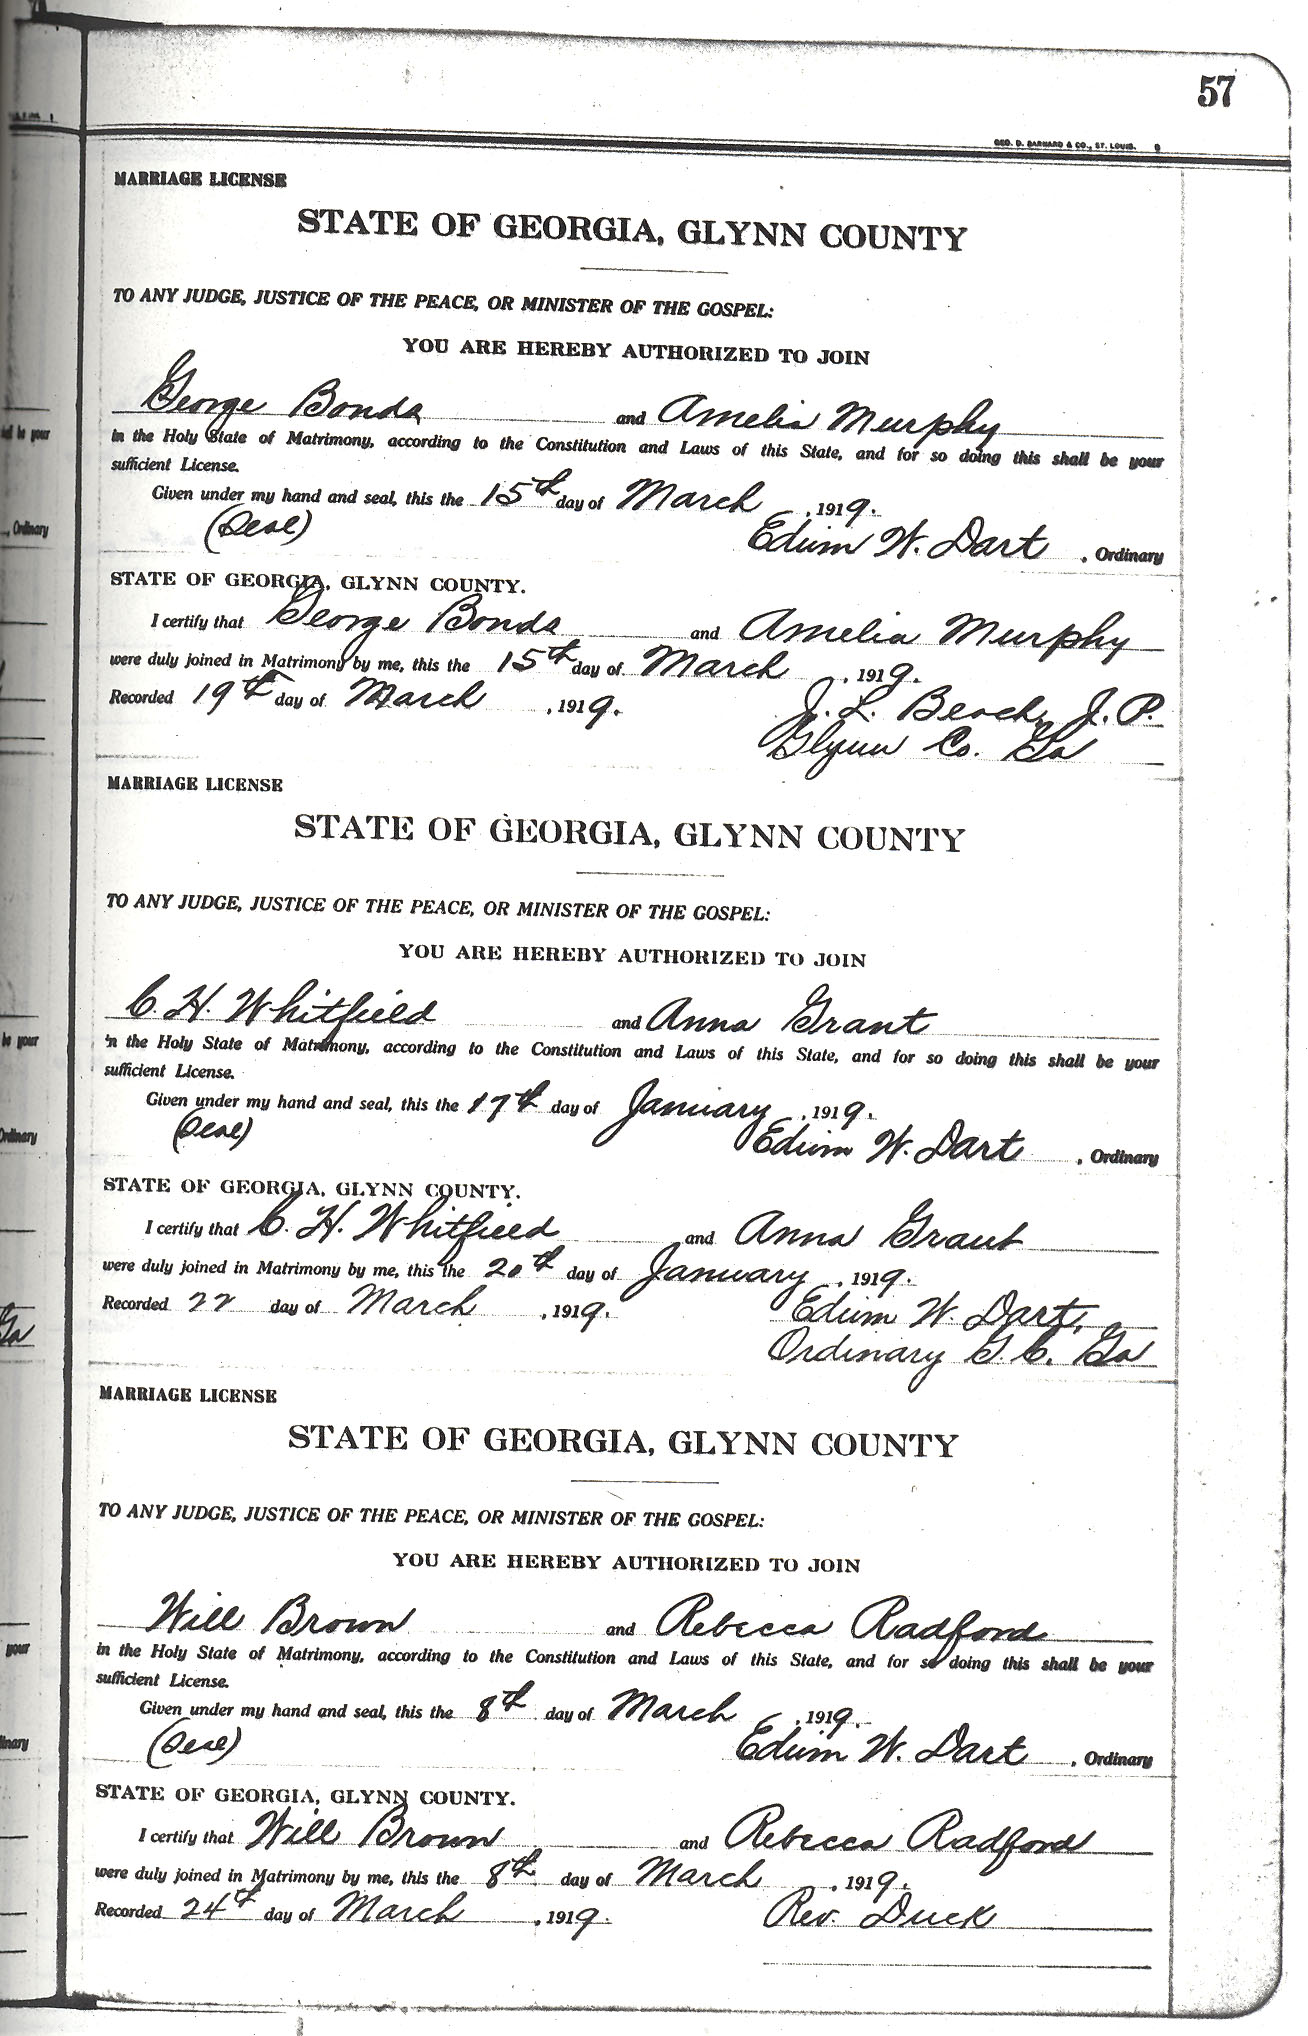 57
GEO. D. BARNARD & CO., ST. LOUIS.
MARRIAGE LICENSE
STATE OF GEORGIA, GLYNN COUNTY
TO ANY JUDGE, JUSTICE OF THE PEACE, OR MINISTER OF THE GOSPEL:
YOU ARE HEREBY AUTHORIZED TO JOIN
George Bonds and Amelia Murphy
in the Holy State of Matrimony, according to the Constitution and Laws of this State, and for so doing this shall be your
sufficient License.
Given under my hand and seal, this the 15th day of March, 1919.
(Seal) Edwin W. Dart, Ordinary
STATE OF GEORGIA, GLYNN COUNTY.
I certify that George Bonds and Amelia Murphy
were duly joined in Matrimony by me, this the 15th day of March, 1919.
Recorded 19th day of March, 1919. J. L. Beach, J. P.
Glynn Co. Ga
MARRIAGE LICENSE
STATE OF GEORGIA, GLYNN COUNTY
TO ANY JUDGE, JUSTICE OF THE PEACE, OR MINISTER OF THE GOSPEL:
YOU ARE HEREBY AUTHORIZED TO JOIN
C. H. Whitfield and Anna Grant
in the Holy State of Matrimony, according to the Constitution and Laws of this State, and for so doing this shall be your
sufficient License.
Given under my hand and seal, this the 17th day of January, 1919.
(Seal) Edwin W. Dart, Ordinary
STATE OF GEORGIA, GLYNN COUNTY.
I certify that C. H. Whitfield and Anna Grant
were duly joined in Matrimony by me, this the 20th day of January, 1919.
Recorded 22 day of March, 1919. Edwin W. Dart,
Ordinary G. C. Ga
MARRIAGE LICENSE
STATE OF GEORGIA, GLYNN COUNTY
TO ANY JUDGE, JUSTICE OF THE PEACE, OR MINISTER OF THE GOSPEL:
YOU ARE HEREBY AUTHORIZED TO JOIN
Will Brown and Rebecca Radford
in the Holy State of Matrimony, according to the Constitution and Laws of this State, and for so doing this shall be your
sufficient License.
Given under my hand and seal, this the 8th day of March, 1919.
(Seal) Edwin W. Dart, Ordinary
STATE OF GEORGIA, GLYNN COUNTY.
I certify that Will Brown and Rebecca Radford
were duly joined in Matrimony by me, this the 8th day of March, 1919.
Recorded 24th day of March, 1919. Rev. Duck